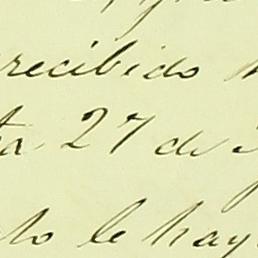 recibido
ta 27 de
to le hay